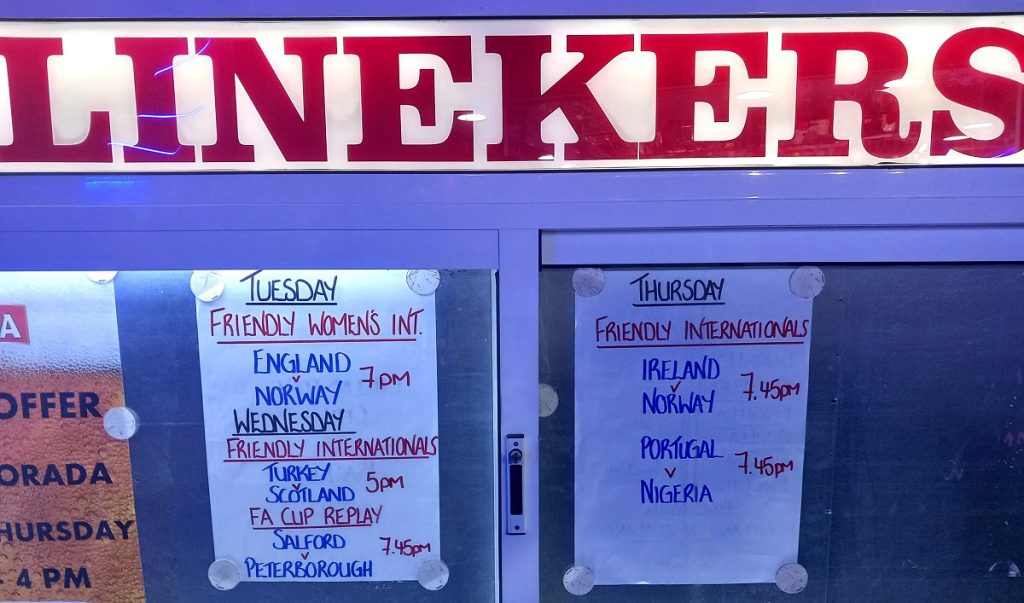 LINEKERS
A
OFFER
ORADA
HURSDAY
- 4 PM
TUESDAY
FRIENDLY WOMEN'S INT.
ENGLAND
v
NORWAY
7pm
WEDNESDAY
FRIENDLY INTERNATIONALS
TURKEY
v
SCOTLAND
5pm
FA CUP REPLAY
SALFORD
v
PETERBOROUGH
7.45pm
THURSDAY
FRIENDLY INTERNATIONALS
IRELAND
v
NORWAY
7.45pm
PORTUGAL
v
NIGERIA
7.45pm